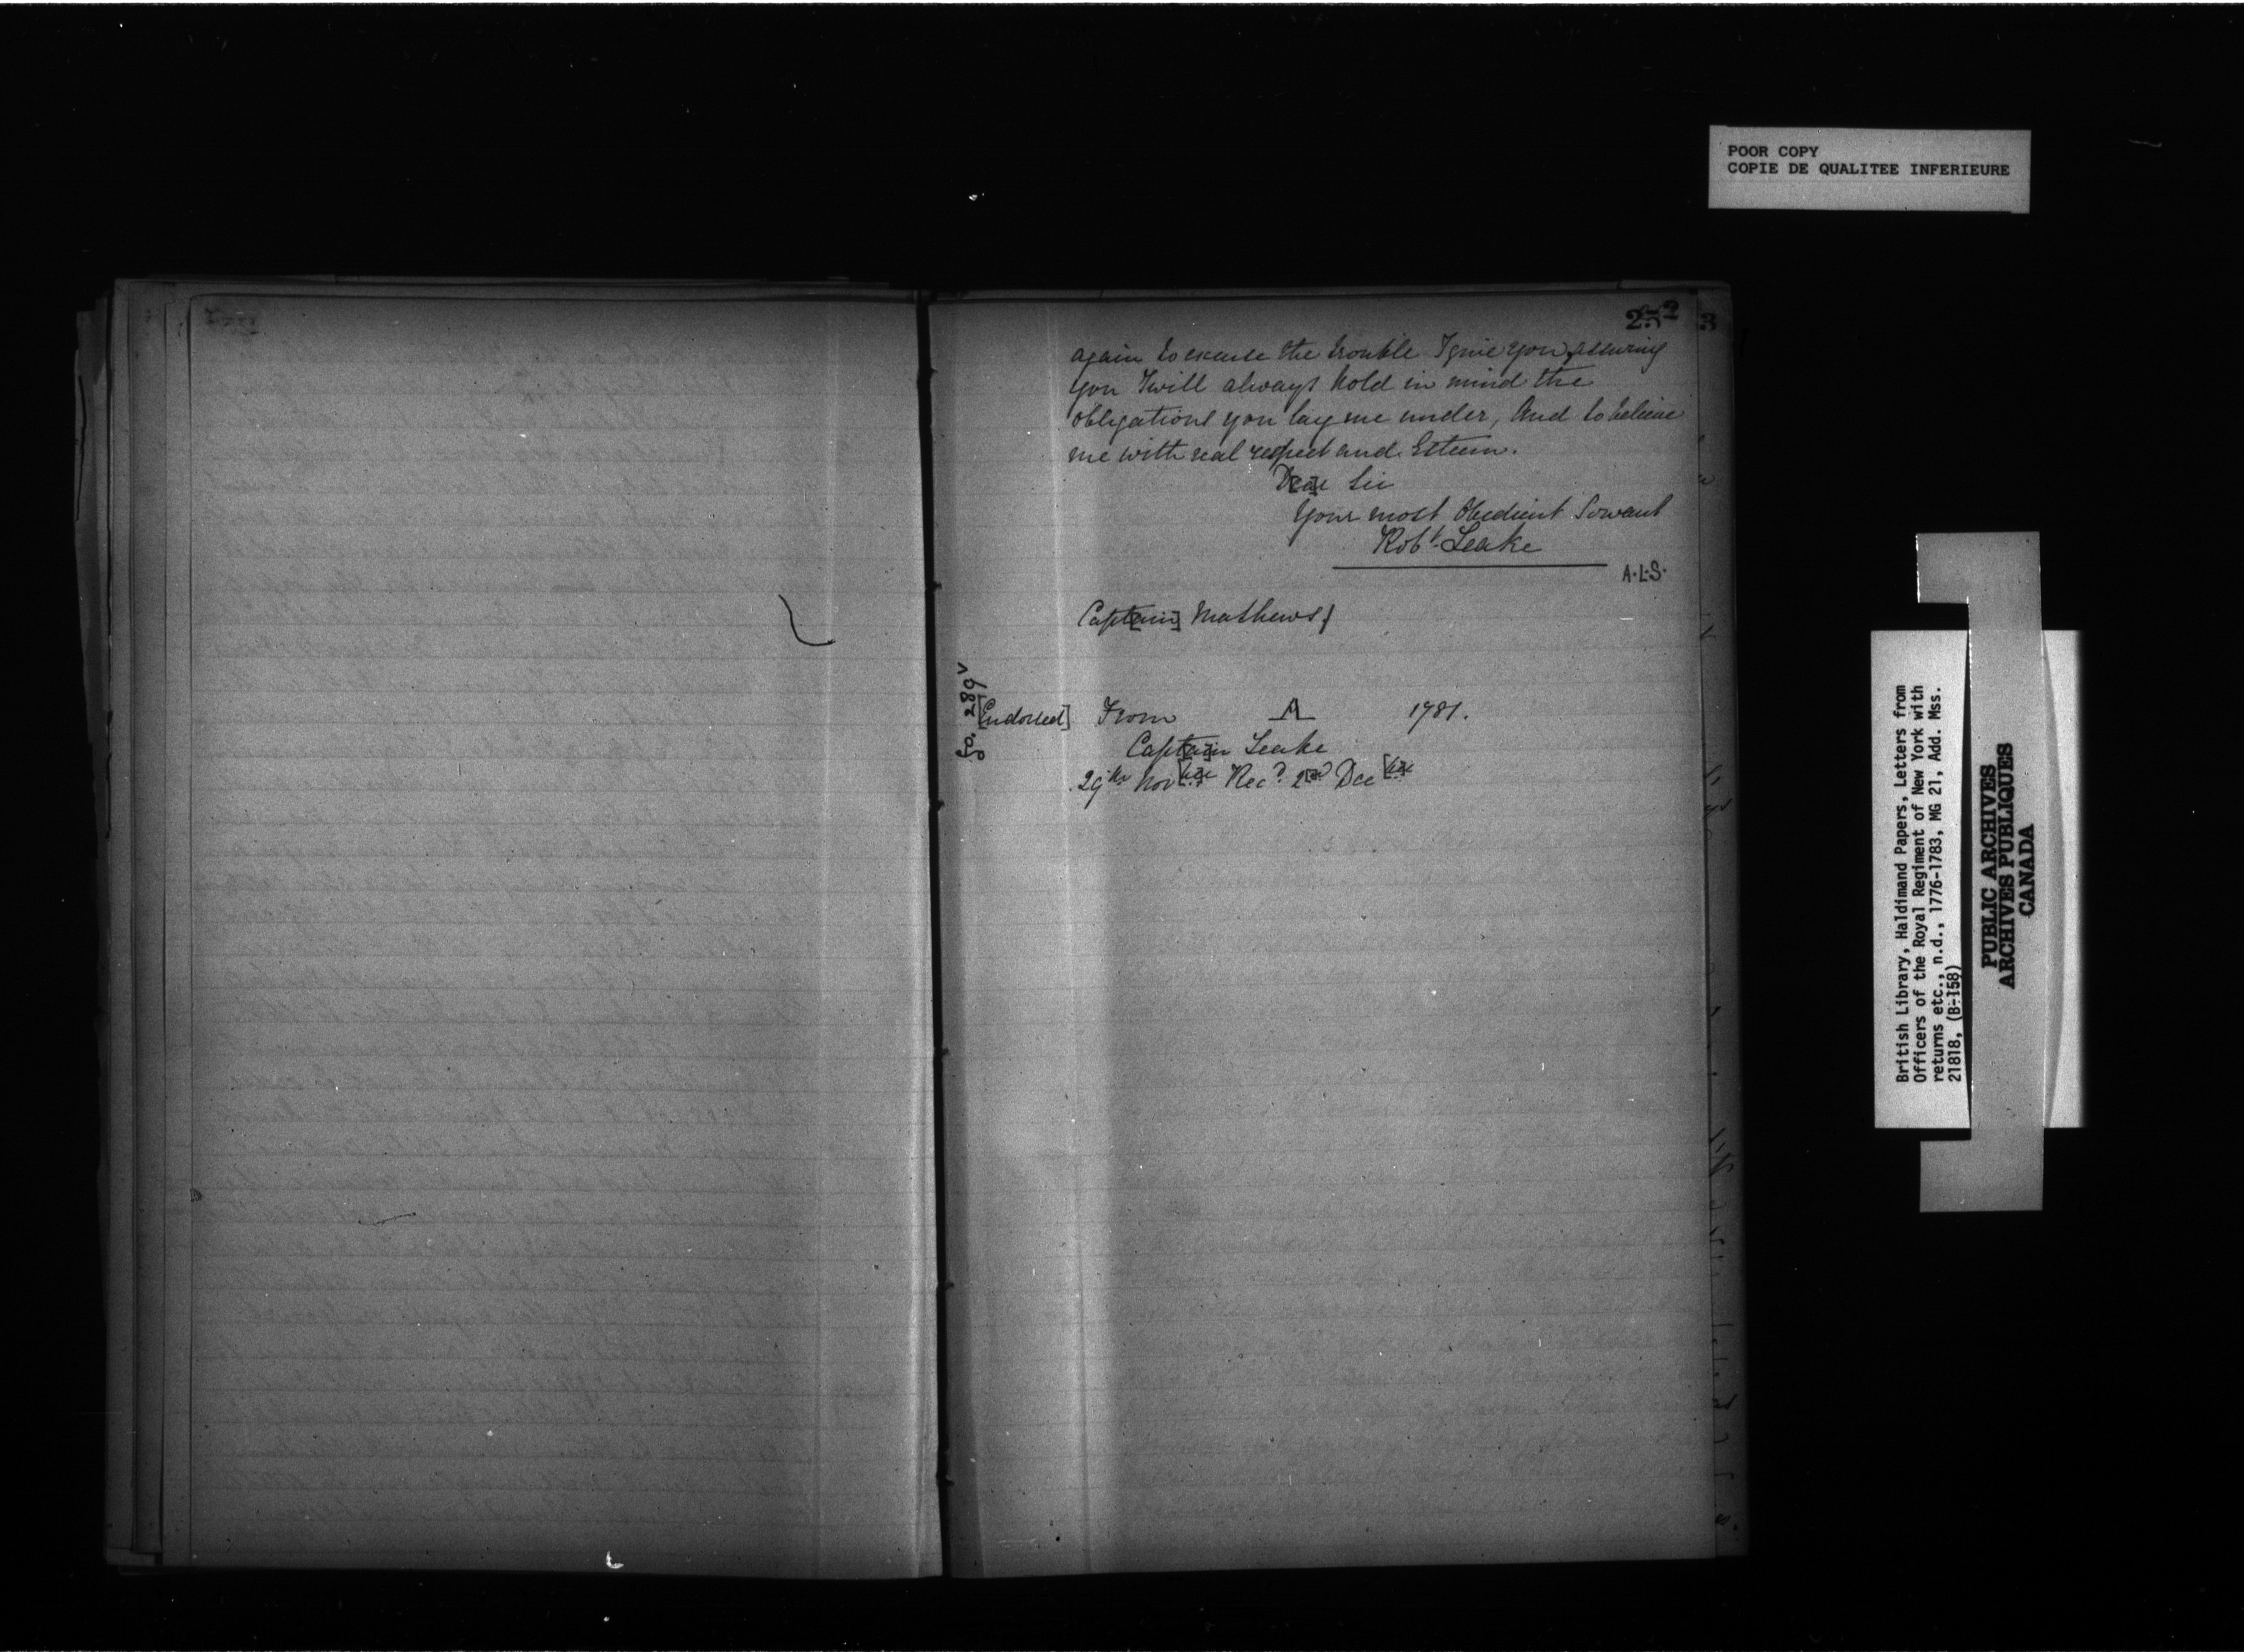 POOR COPY
COPIE DE QUALITEE INFERIEURE
252
3
again to excuse the trouble I give you, assuring
you I will always hold in mind the
obligations you lay me under, And to believe
me with real respect and Esteem.
D[ea]r Sir
Your most Obedient Servant
Robt. Leake
A.L.S.
Capt[ain] Mathews}
fo. 289v
[Endorsed] From A 1781.
Capt[ai]n Leake
29th Nov[be]r Recd. 2[n]d Dec[be]r
British Library, Haldimand Papers, Letters from
Officers of the Royal Regiment of New York with
returns etc., n.d., 1776-1783, MG 21, Add. Mss.
21818, (B-158)
PUBLIC ARCHIVES
ARCHIVES PUBLIQUES
CANADA